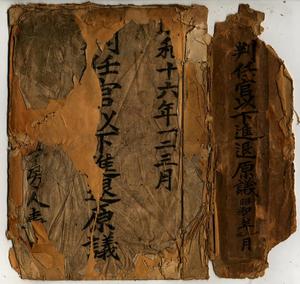 判任官以下進退原議 昭和 月
和十六年一二三月
任官以下進退原議
房人事